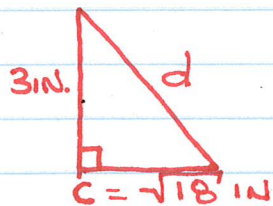 3IN.
d
C = √18 IN